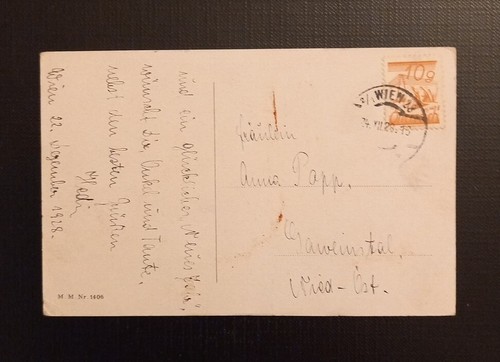 und ein glückliches Neues Jahr,
wünscht Dir Onkel und Tante.
nebst den besten Grüßen
Wien 22. Dezember 1928.
M. M. Nr. 1606
10g
WIEN
Fräulein
Anna Papp.
Gaweinstal.
Nied-Öst.